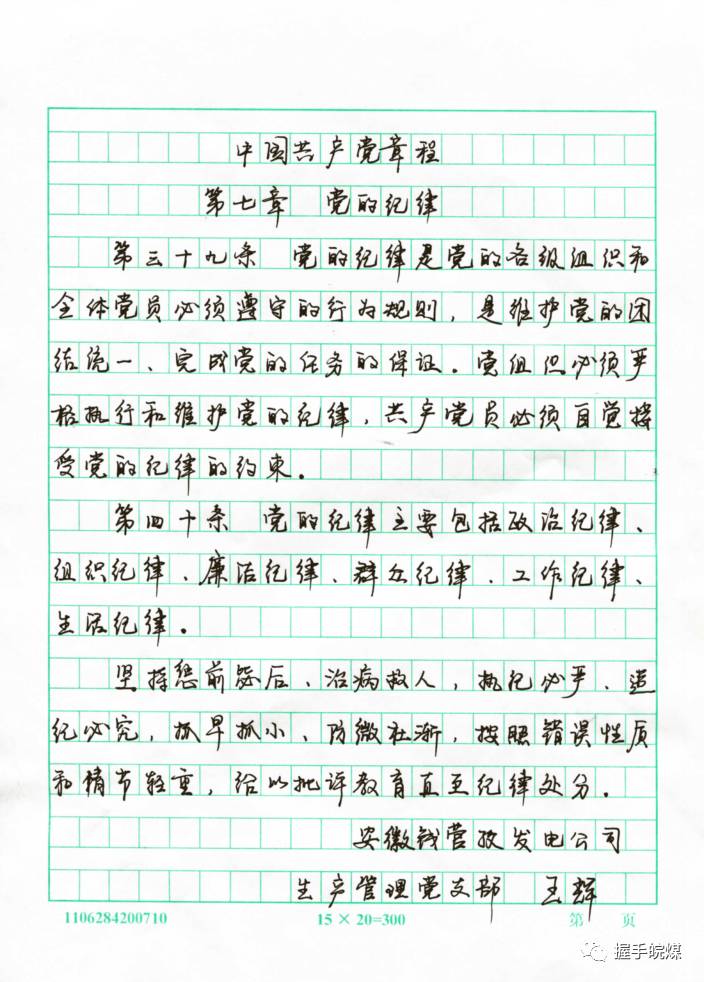 中国共产党章程
第七章 党的纪律
第三十九条 党的纪律是党的各级组织和
全体党员必须遵守的行为规则，是维护党的团
结统一、完成党的任务的保证。党组织必须严
格执行和维护党的纪律，共产党员必须自觉接
受党的纪律的约束。
第四十条 党的纪律主要包括政治纪律、
组织纪律、廉洁纪律、群众纪律、工作纪律、
生活纪律。
坚持惩前毖后、治病救人，执纪必严、违
纪必究，抓早抓小、防微杜渐，按照错误性质
和情节轻重，给以批评教育直至纪律处分。
安徽钱营孜发电公司
生产管理党支部 王辉
1106284200710 15×20=300 第 页
握手皖煤